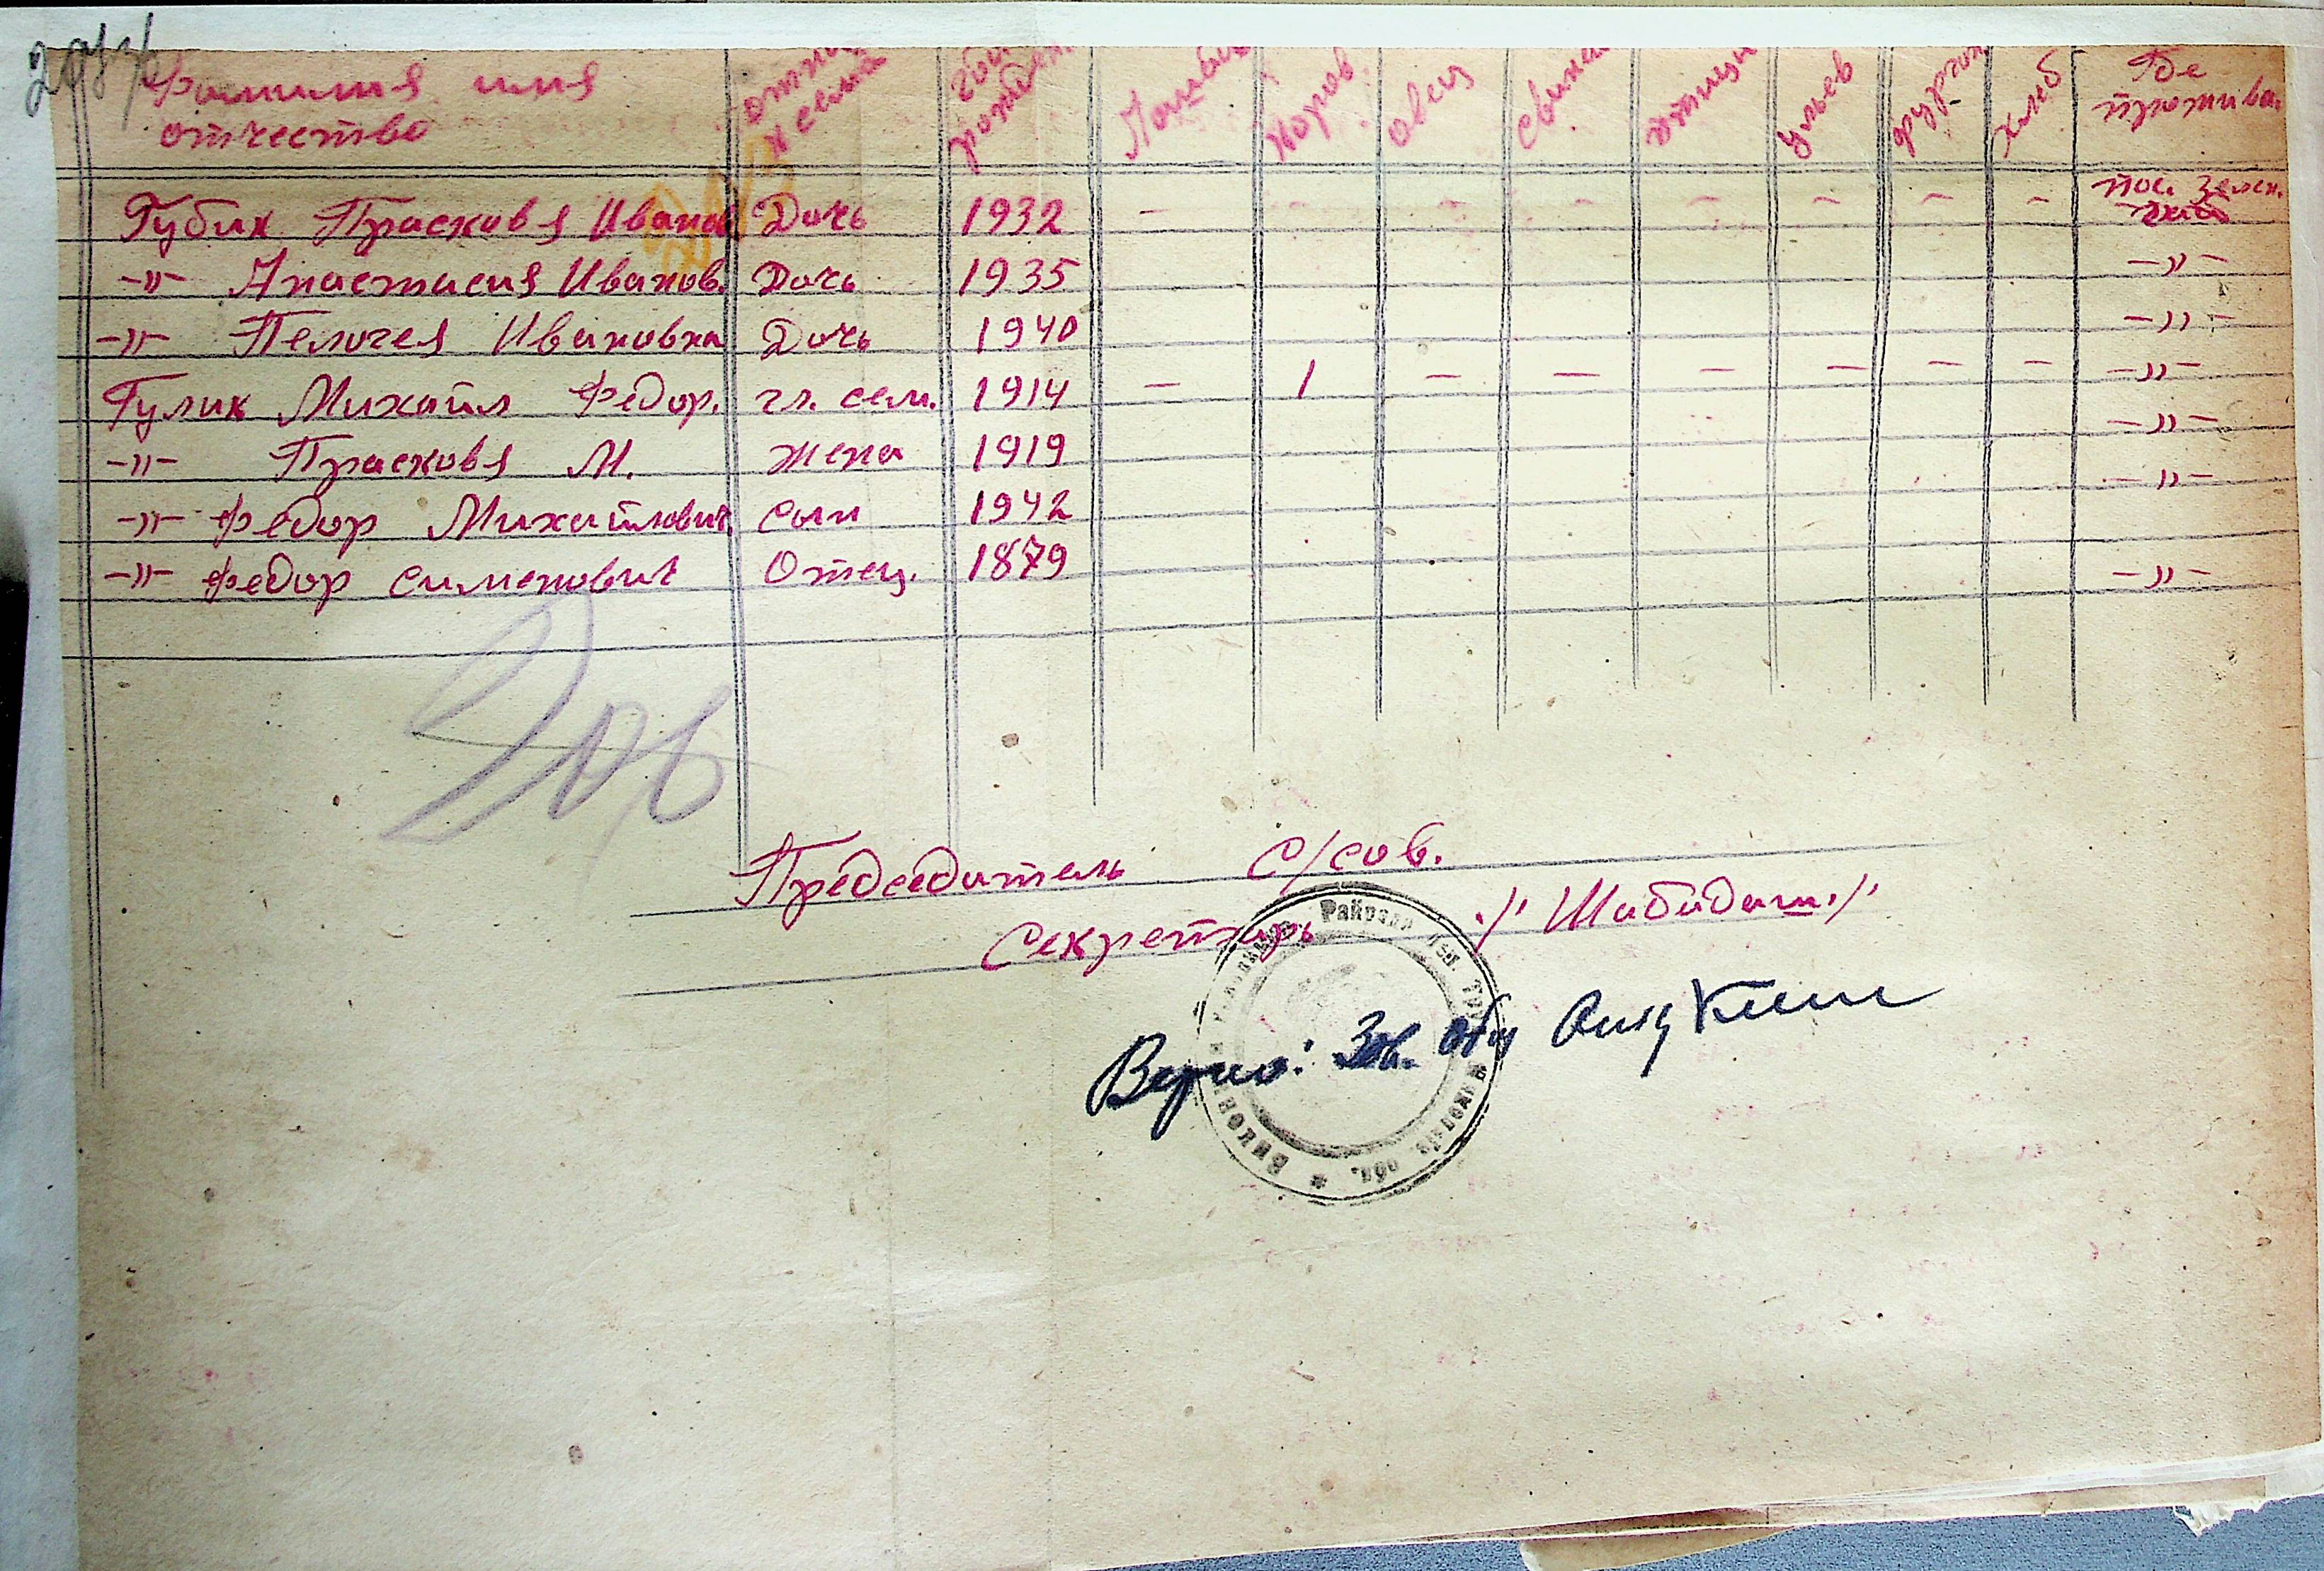 Фамилия имя отчество год рожден. Лошадь Коров овец свиней птицы ульев фургон хлеб Где прожива.
Губик Прасковя Иванов Дочь 1932 - - - - - - - - пос. Зелен.
-"- Анастасия Иванов. Дочь 1935 -"-
-"- Пелогея Ивановна Дочь 1940 -"-
Гулик Михайл Федор. гл. сем. 1914 - 1 - - - - - - -"-
-"- Прасковя М. жена 1919 -"-
-"- Федор Михайлович сын 1942 -"-
-"- Федор Сименович Отец. 1879 -"-
Председатель с/сов.
Секретарь ./. Шабидаш./.
Верно: Зав.